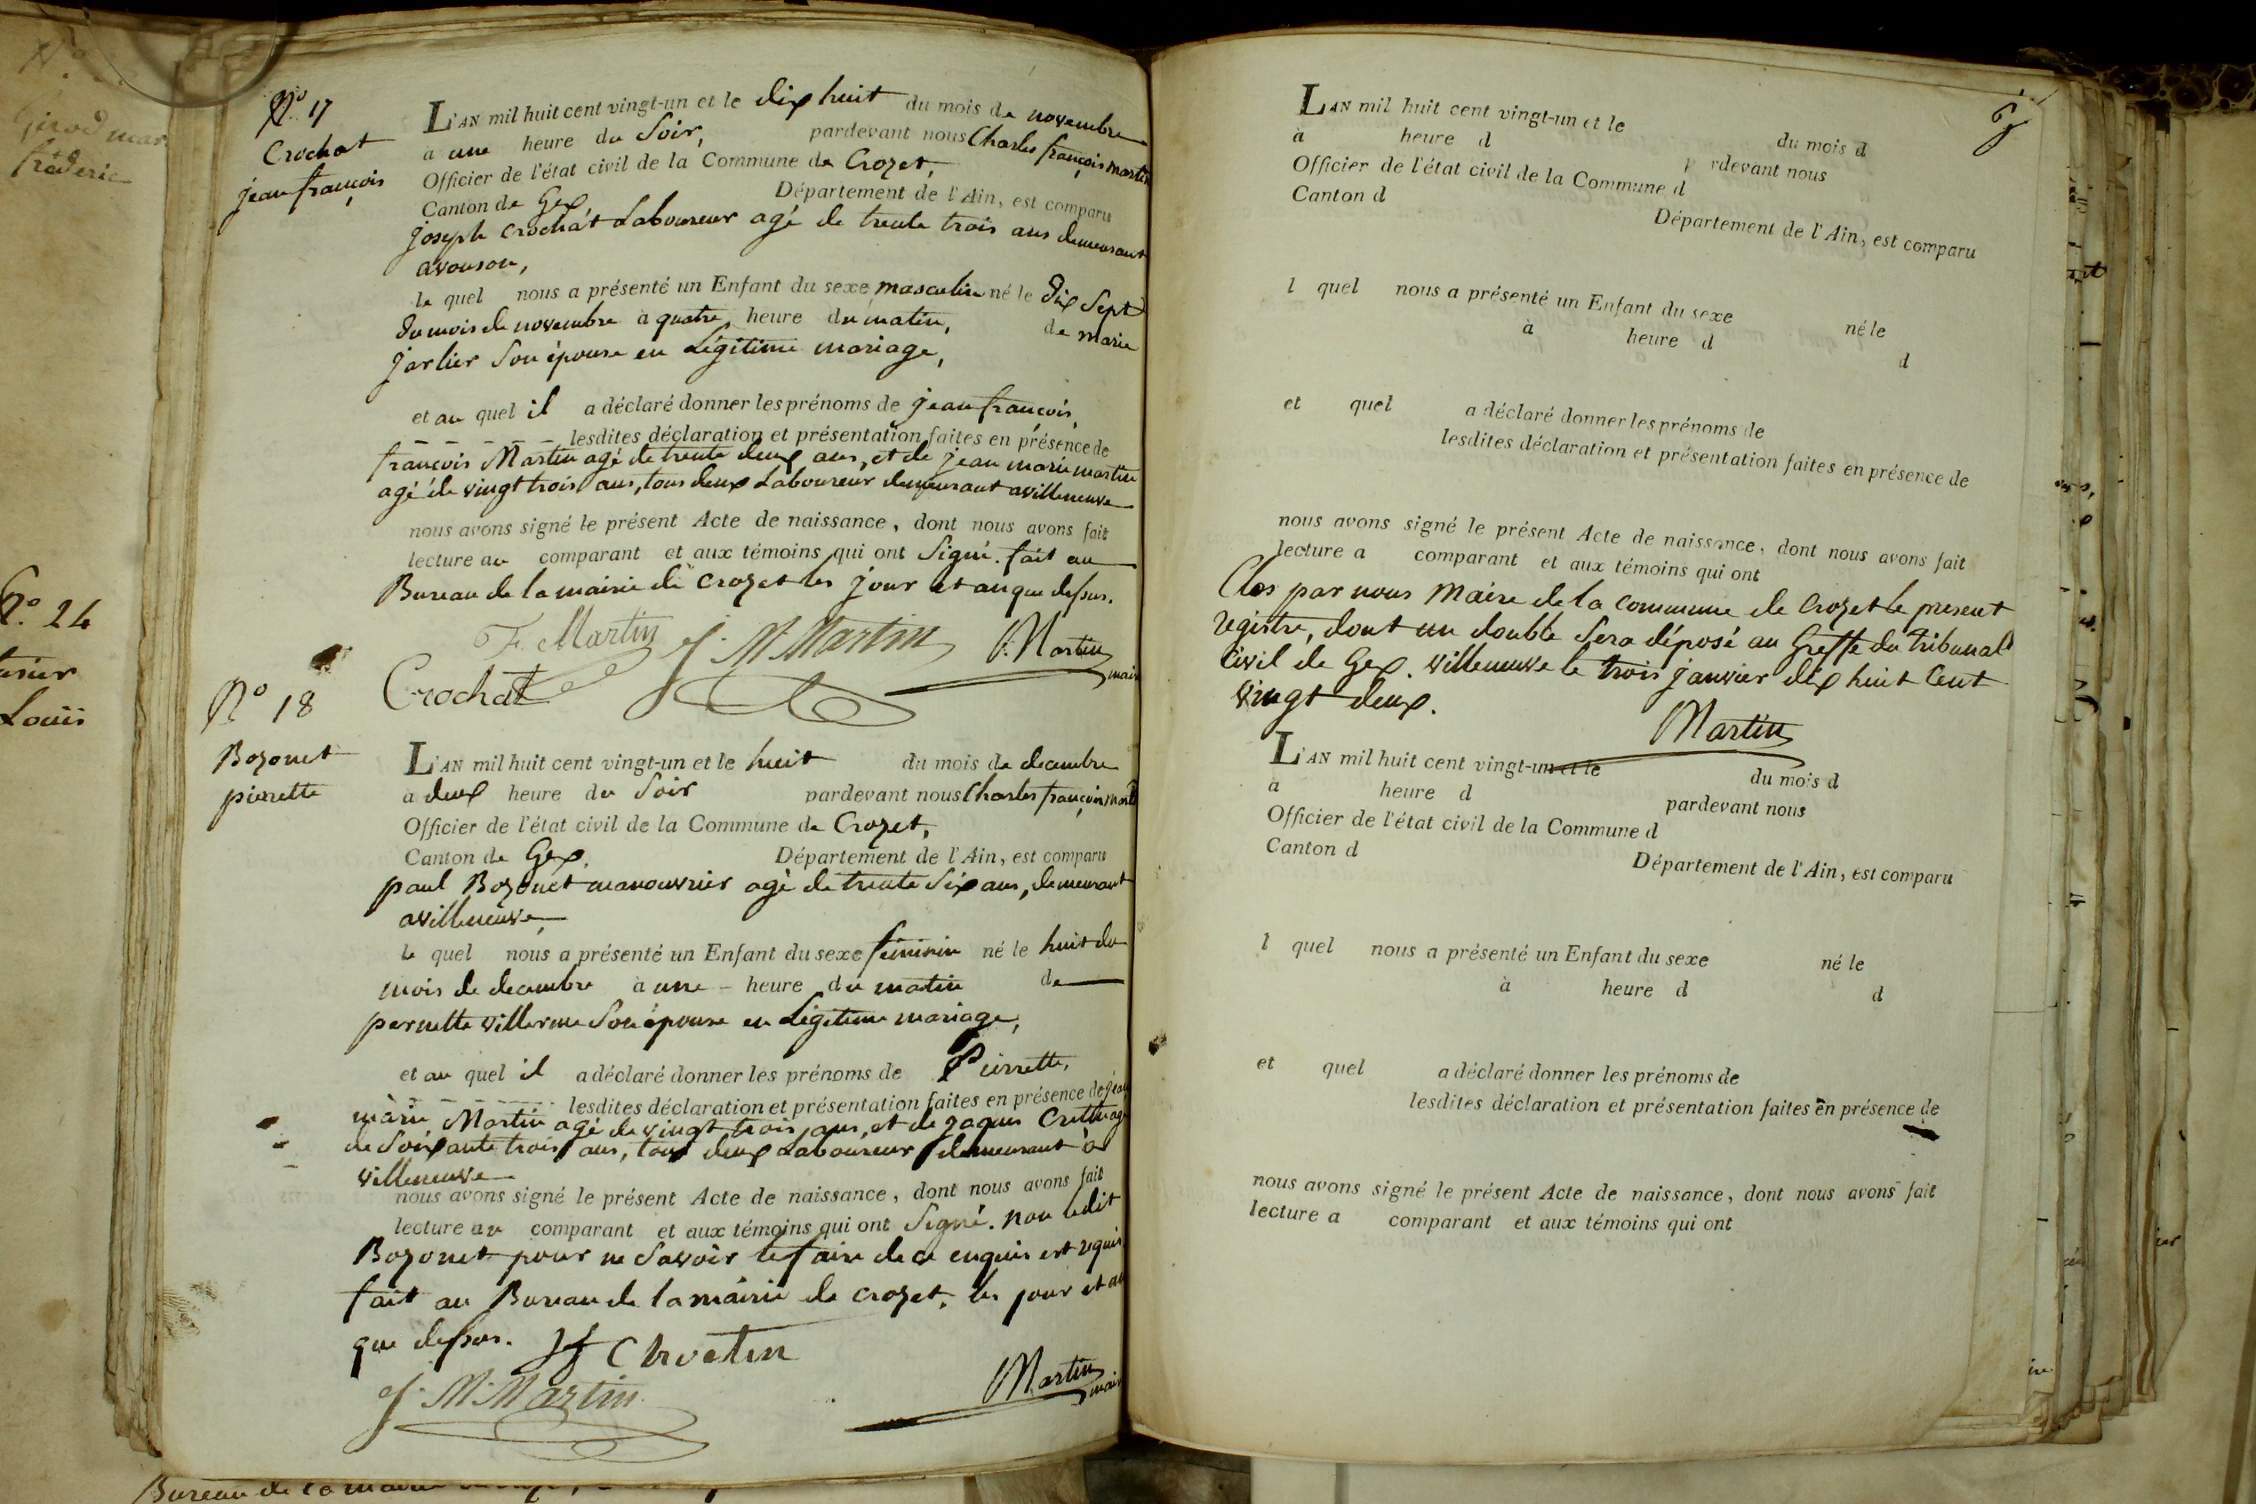 Girod mar
frederic
N.º 24
Louis
N.º 17
Crochat
jean françois
L'AN mil huit cent vingt-un et le dix huit du mois de novembre
à une heure du Soir, pardevant nous Charles françois martin
Officier de l'état civil de la Commune de Crozet,
Canton de Gex, Département de l'Ain, est comparu
joseph crochat Laboureur agé de trente trois ans demeurant
avouson,
le quel nous a présenté un Enfant du sexe masculin né le dix Sept
du mois de novembre à quatre heure du matin, de marie
jarlier Son épouse en Légitime mariage,
et au quel il a déclaré donner les prénoms de jean françois,
lesdites déclaration et présentation faites en présence de
françois Martin agé de trente deux ans, et de jean marie martin
agé de vingt trois ans, tous deux Laboureur demeurant a villeneuve
nous avons signé le présent Acte de naissance, dont nous avons fait
lecture au comparant et aux témoins qui ont Signé. fait au
Bureau de la mairie de Crozet les jour et an que dessus.
F. Martin J. M Martin Martin
maire
Crochat
N.º 18
Bozonet
pierrette
L'AN mil huit cent vingt-un et le huit du mois de decembre
à deux heure du Soir pardevant nous Charles françois martin
Officier de l'état civil de la Commune de Crozet,
Canton de Gex, Département de l'Ain, est comparu
paul Bozonet manouvrier agé de trente Six ans, demeurant
a villeneuve,
le quel nous a présenté un Enfant du sexe féminin né le huit du
mois de decembre à une heure du matin de
pernette villerme Son épouse en Légitime mariage,
et au quel il a déclaré donner les prénoms de Pierrette,
lesdites déclaration et présentation faites en présence de jean
marie Martin agé de vingt trois ans, et de jaques Cretin agé
de Soixante trois ans, tous deux Laboureur demeurant à
villeneuve
nous avons signé le présent Acte de naissance, dont nous avons fait
lecture au comparant et aux témoins qui ont Signé. non ledit
Bozonet pour ne Savoir le faire de ce enquis et requis
fait au Bureau de la mairie de crozet, les jour et an
que dessus.
J. M. Martin Martin
maire
Bureau de la mairie
6
L'AN mil huit cent vingt-un et le du mois d
à heure d pardevant nous
Officier de l'état civil de la Commune d
Canton d Département de l'Ain, est comparu
l quel nous a présenté un Enfant du sexe né le
à heure d d
et quel a déclaré donner les prénoms de
lesdites déclaration et présentation faites en présence de
nous avons signé le présent Acte de naissance, dont nous avons fait
lecture a comparant et aux témoins qui ont
Clos par nous Maire de la commune de Crozet le present
registre, dont un double Sera déposé au Greffe du tribunal
Civil de Gex. villeneuve le trois janvier dix huit Cent
vingt deux.
Martin
L'AN mil huit cent vingt-un et le du mois d
à heure d pardevant nous
Officier de l'état civil de la Commune d
Canton d Département de l'Ain, est comparu
l quel nous a présenté un Enfant du sexe né le
à heure d d
et quel a déclaré donner les prénoms de
lesdites déclaration et présentation faites en présence de
nous avons signé le présent Acte de naissance, dont nous avons fait
lecture a comparant et aux témoins qui ont